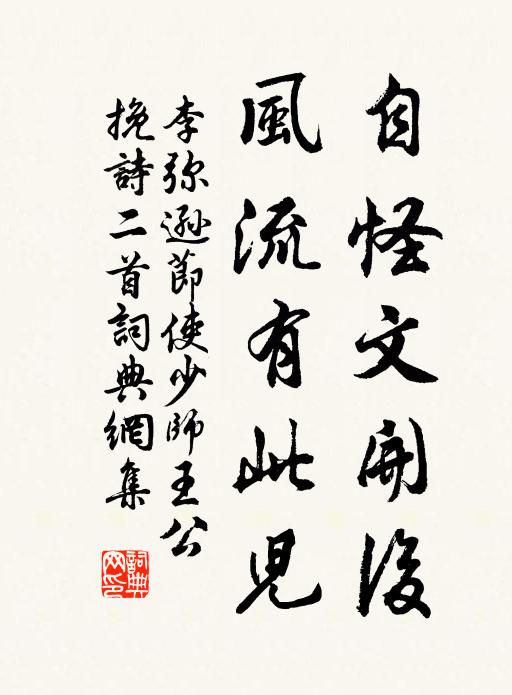 自怪文開後
風流有此児
李弥遜節使少師王公
挽詩二首詞典網集
詞典
网印